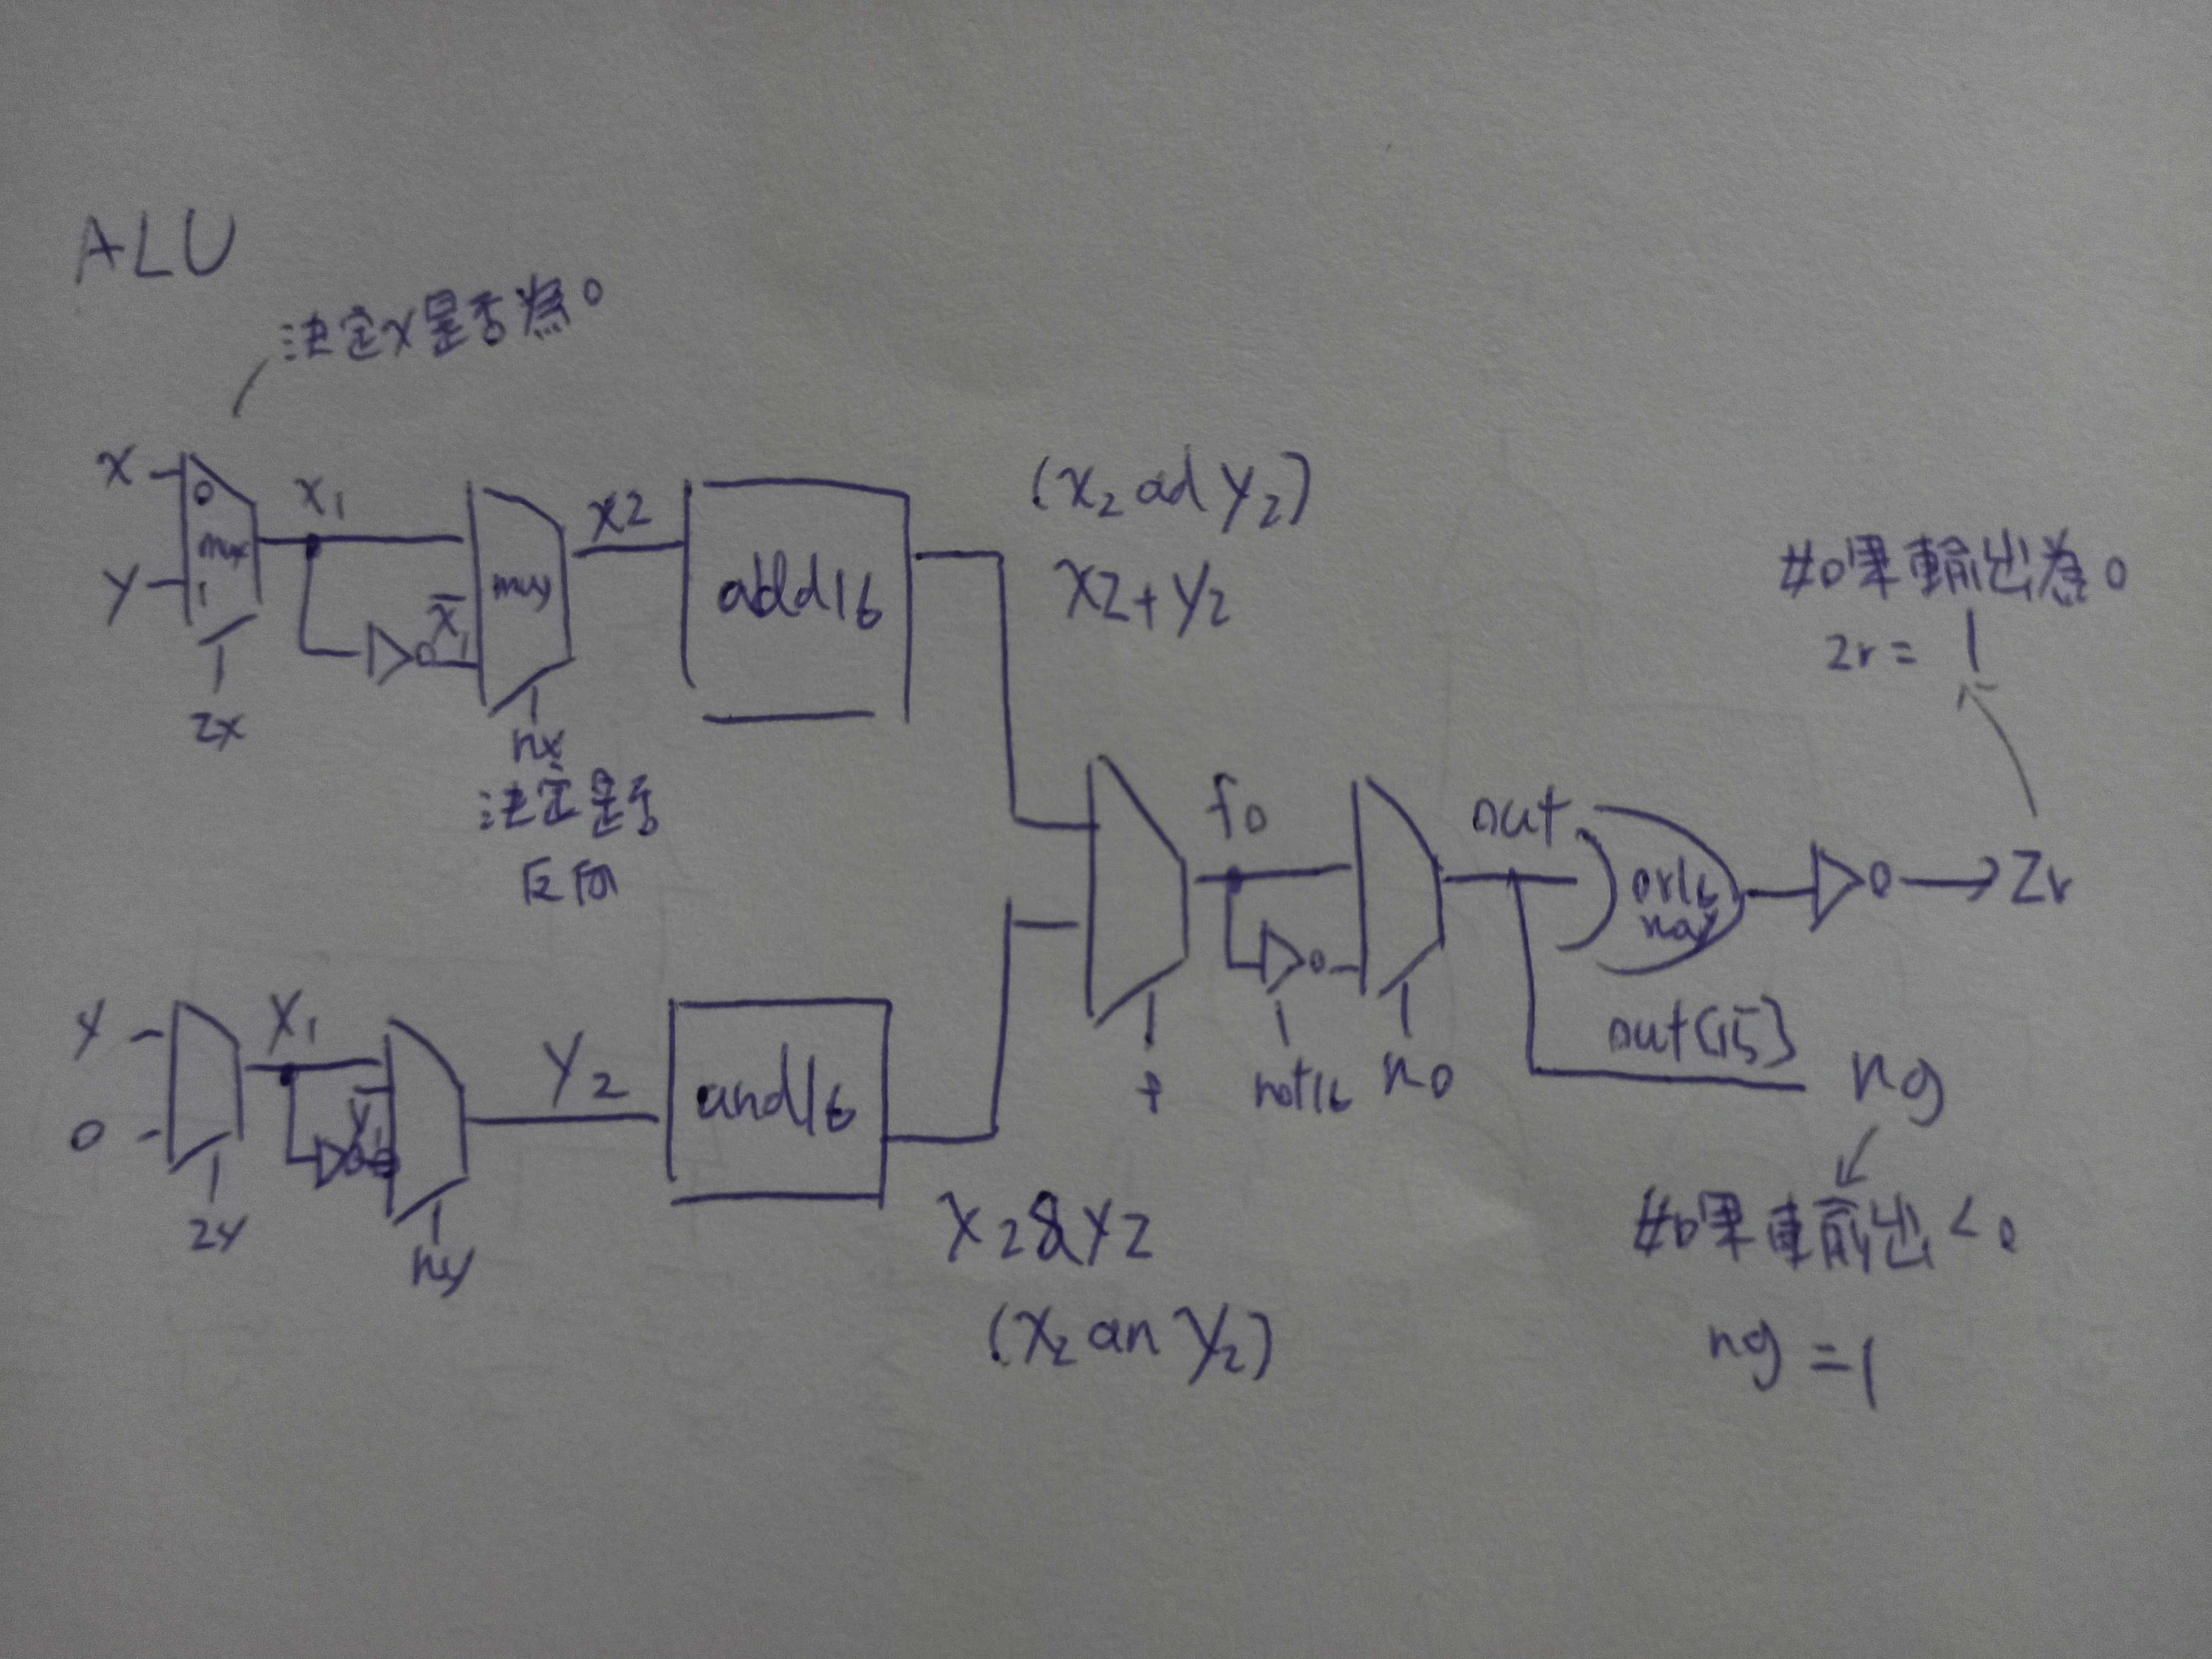 ALU
決定x是否為0
x
0
mux
y
1
zx
x1
x̄1
mux
nx
決定是否
反向
x2
add16
(x2 ad y2)
x2+y2
y
0
zy
Y1
ȳ1
ny
Y2
and16
x2&y2
(x2 an y2)
f
fo
not16
no
out
or16
way
zr
如果輸出為0
zr = 1
out[15]
ng
如果輸出<0
ng=1